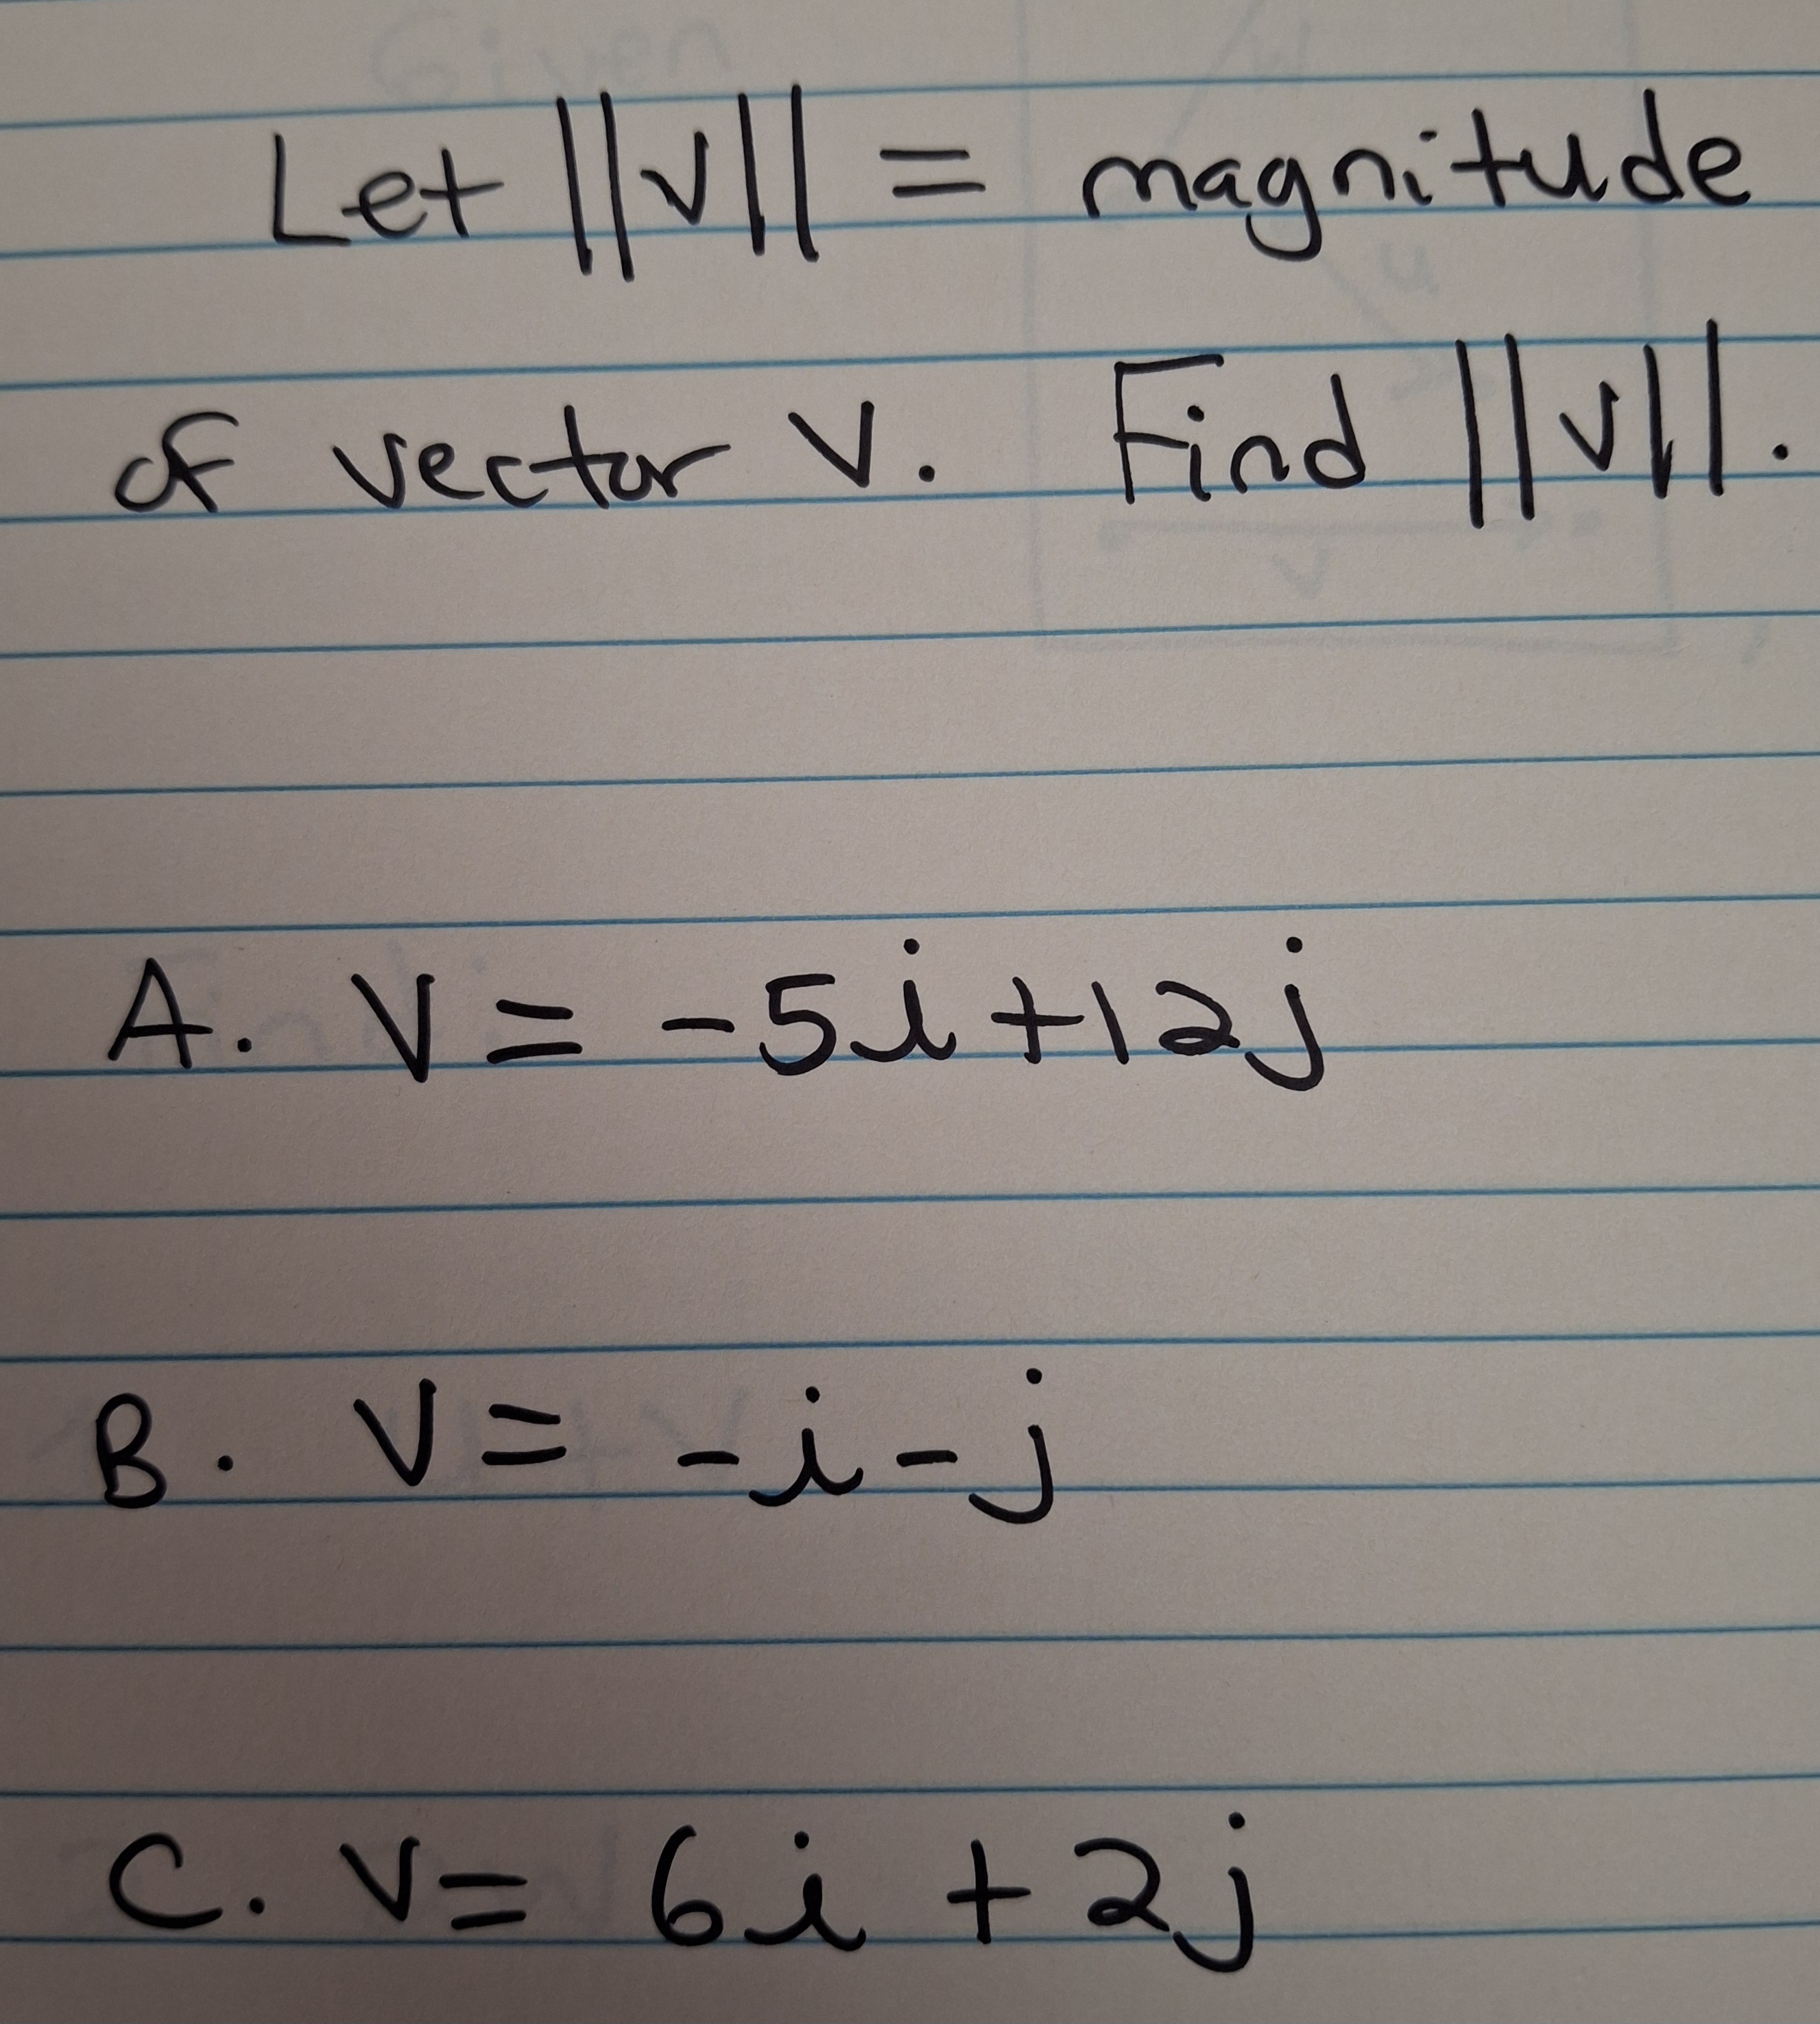 Let ||v|| = magnitude
of vector v. Find ||v||.
A. V = -5i+12j
B. V = -i-j
C. V = 6i + 2j